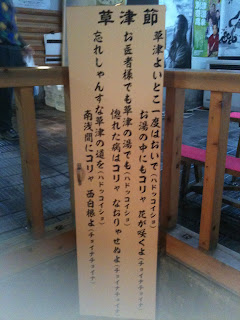 草津節
草津よいとこ一度はおいで(ハドッコイショ)
お湯の中にもコリャ 花が咲くよ(チョイナチョイナ)
お医者様でも草津の湯でも(ハドッコイショ)
惚れた病はコリャ なおりゃせぬよ(チョイナチョイナ)
忘れしゃんすな草津の道を(ハドッコイショ)
南浅間にコリャ 西白根よ(チョイナチョイナ)